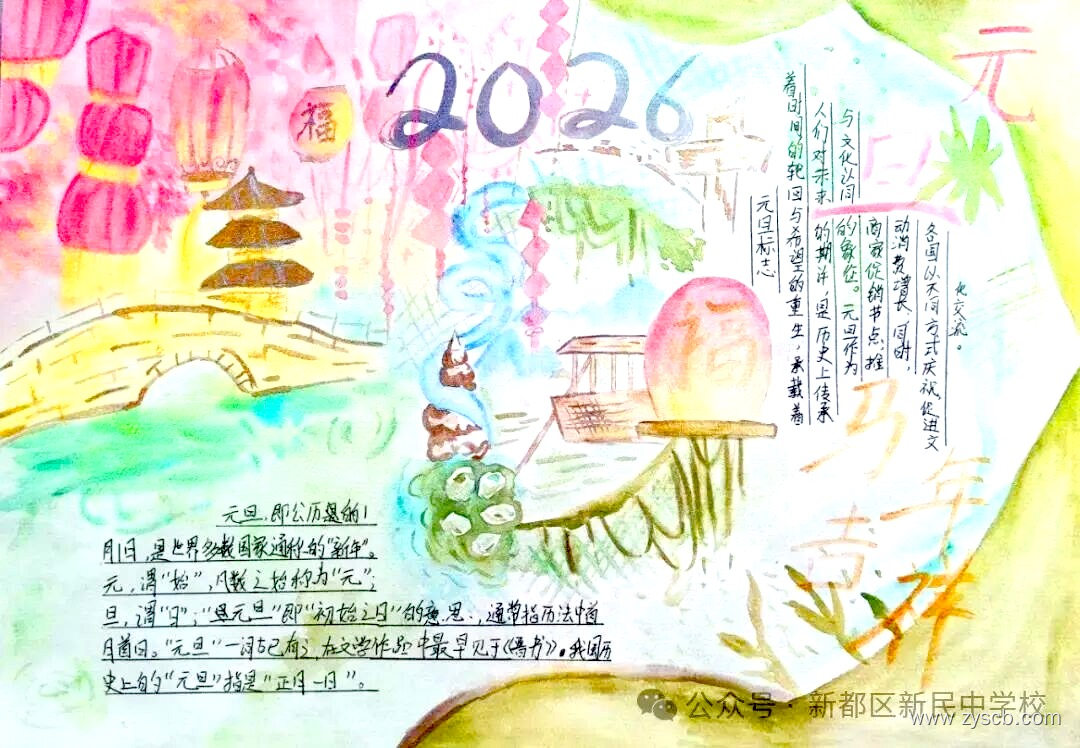 2026
福
元
旦
福
元旦标志
着时间的轮回与希望的重生，承载着
人们对未来的期许，是历史上传承
与文化认同的象征。元旦作为
商家促销节点，推
动消费增长，同时，
各国以不同方式庆祝，促进文
化交流。
马
年
吉
祥
元旦，即公历的1
月1日，是世界多数国家通称的“新年”。
元，谓“始”，凡数之始称为“元”；
旦，谓“日”；“元旦”即“初始之日”的意思，通常指历法中首
月首日。“元旦”一词古已有之，在文学作品中最早见于《晋书》。我国历
史上的“元旦”指是“正月一日”。
公众号·新都区新民中学校
www.zyscb.com